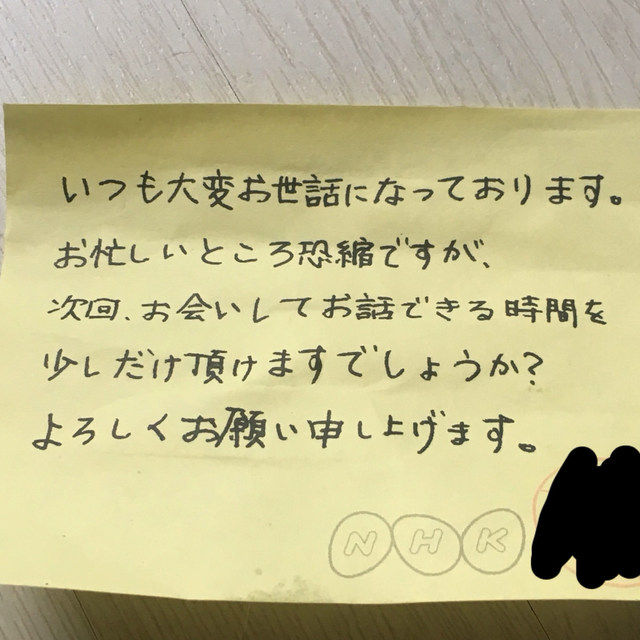 いつも大変お世話になっております。
お忙しいところ恐縮ですが、
次回、お会いしてお話できる時間を
少しだけ頂けますでしょうか?
よろしくお願い申し上げます。
NHK